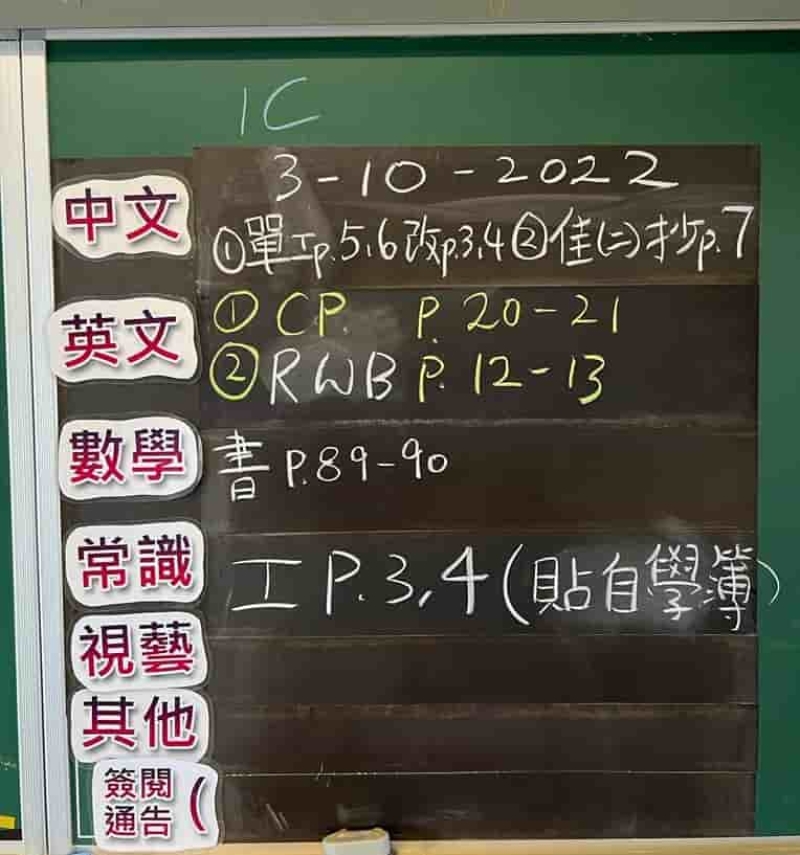 1C
3-10-2022
中文 ①單工p.5,6改p.3,4②佳(二)抄p.7
英文 ①CP. P. 20-21
②RWB P. 12-13
數學 書P.89-90
常識 工P.3,4(貼自學簿)
視藝
其他
簽閱
通告 (